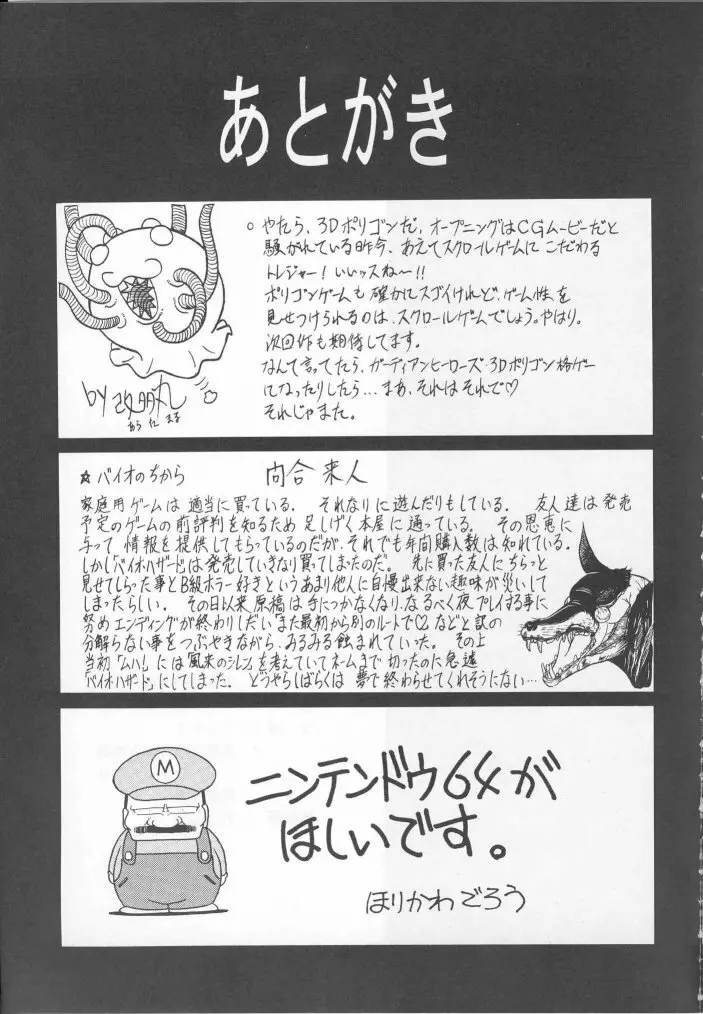 あとがき
○ やたら、3Dポリゴンだ、オープニングはCGムービーだと
騒がれている昨今、あえてスクロールゲームにこだわる
トレジャー！いいッスね〜!!
ポリゴンゲームも確かにスゴイけれど、ゲーム性を
見せつけられるのは、スクロールゲームでしょう。やはり。
次回作も期待してます。
なんて言ってたら、ガーディアンヒーローズ・3Dポリゴン格ゲー
になったりしたら…まあ、それはそれで♡
それじゃまた。
by
☆バイオのちから 向合来人
家庭用ゲームは適当に買っている。それなりに遊んだりもしている。友人達は発売
予定のゲームの前評判を知るため足しげく本屋に通っている。その恩恵に
与って情報を提供してもらっているのだが、それでも年間購入数は知れている。
しかし「バイオハザード」は発売していきなり買ってしまったのだ。先に買った友人にちらっと
見せてしらった事とB級ホラー好きというあまり他人に自慢出来ない趣味が災いして
しまったらしい。その日以来原稿は手につかなくなり、なるべく夜プレイする事に
努めエンディングが終わりしだい「また最初から別のルートで♡」などと訳の
分解らない事をつぶやきながら、みるみる蝕まれていった。その上
当初「ムハ!」には「風来のシレン」を考えていてネームまで切ったのに急遽
「バイオハザード」にしてしまった。どうやらしばらくは夢で終わらせてくれそうにない…
M
ニンテンドウ64が
ほしいです。
ほりかわごろう